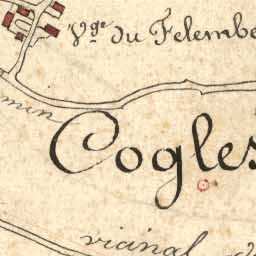 Vge du Felembe
min
Cogles
vicinal